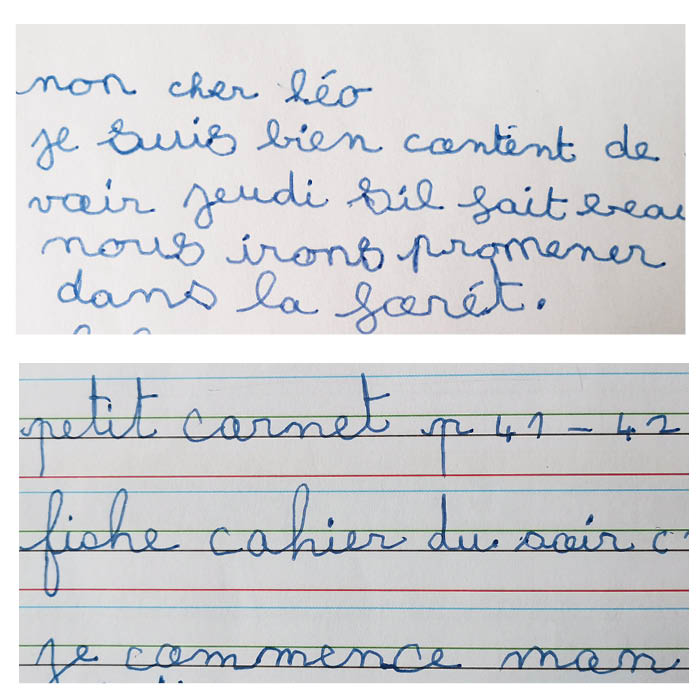 non cher léo
je suis bien content de
voir jeudi sil fait beau
nous irons promener
dans la forét.
petit carnet p 41 - 42
fiche cahier du soir c
je commence mon